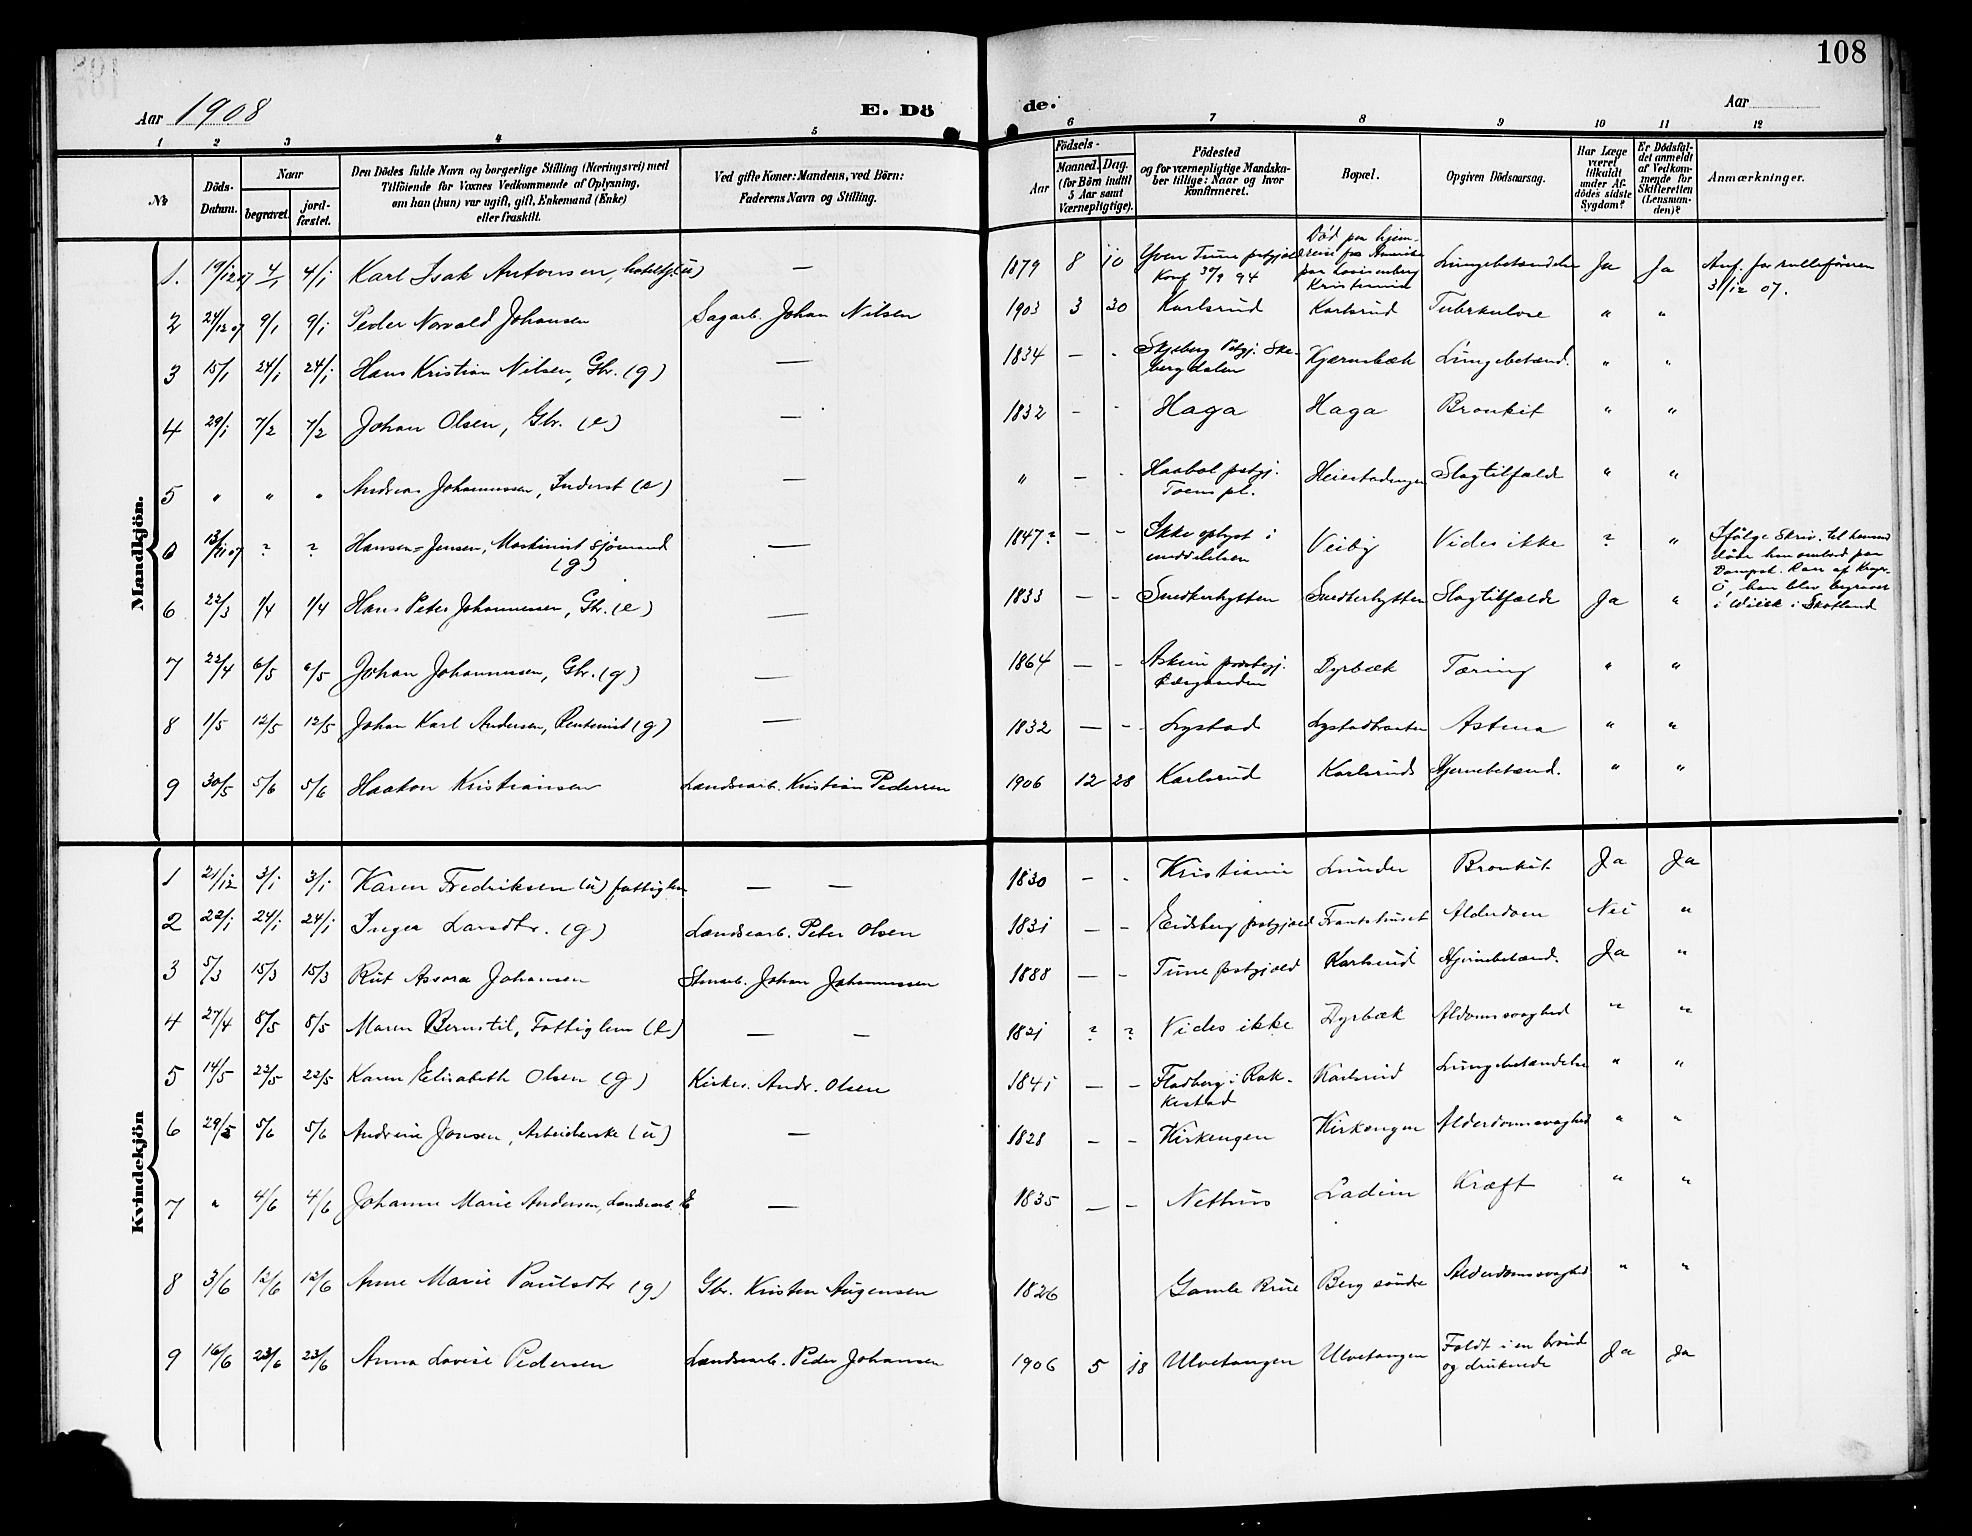 108
Aar 1908
E. Dö
de.
Aar
1 2 3 4 5
6 7 8 9 10 11 12
№
Döds-Datum.
Naar
begravet.
jordfæstet.
Den Dödes fulde Navn og borgerlige Stilling (Næringsvei) med Tilföiende for Voxnes Vedkommende af Oplysning, om han (hun) var ugift, gift, Enkemand (Enke) eller fraskilt.
Ved gifte Koner: Mandens, ved Börn: Faderens Navn og Stilling.
Födsels-
Aar
Maaned. Dag. (for Börn indtil 5 Aar samt Værnepligtige).
Födested og for værnepligtige Mandskaber tillige: Naar og hvor konfirmeret.
Bopæl.
Opgiven Dödsaarsag.
Har Læge været tilkaldt under Afdödes sidste Sygdom?
Er Dödsfaldet anmeldt af Vedkommende for Skifteretten (Lensmanden)?
Anmærkninger.
Mandkjön.
1. 19/12 07 4/1 4/1 Karl Isak Antonsen, (u) — 1879 8 10 Tune prstgjeld Konf 94 Død paa hjemreise fra Amerika paa Kristiania Lungebetændelse Ja Ja Anf. for rulleføreren 31/12 07.
2 24/12 07 9/1 9/1 Peder Norvald Johansen Sagarb. Johan Nilsen 1903 3 30 Karlsrud Karlsrud Tuberkulose " "
3 15/1 24/1 24/1 Hans Kristian Nilsen, Gbr. (g) — 1834 — - Skjeberg Pstgj. Skebergdalen Kjærnsbæk Lungebetænd. " "
4 29/1 7/2 7/2 Johan Olsen, Gbr. (e) — 1832 - - Haga Haga Bronkit " "
5 " " " Andreas Johannessen, Inderst (e) — " — - Haabøl pstgj. pl. Slagtilfælde " "
6 13/11 07 ? ? Hansen=Jensen, Maskinist Sjömand (g) — 1847? — - Ikke oplyst i meddelelsen Veiby Vides ikke ? " Ifölge Skriv. til döde han ombord paa Dampsk. af , han blev begravet i Wick i Skotland
6 22/3 1/4 1/4 Hans Peter Johannessen, Gbr. (e) — 1833 — - Snedkerhytten Snedkerhytten Slagtilfælde Ja "
7 22/4 6/5 6/5 Johan Johannesen, Gbr. (g) — 1864 — - Askim prestegj. Dyrbæk Tæring " "
8 1/5 12/5 12/5 Johan Karl Andersen, Rentenist (g) — 1832 — - Lystad Lystadbraaten Astma " "
9 30/5 5/6 5/6 Haakon Kristiansen Landsarb. Kristian Pedersen 1906 12 28 Karlsrud Karlsrud Hjernebetænd. " "
Kvindekjön
1 21/12 3/1 3/1 Karen Fredriksen (u) fattiglem — — 1830 - - Kristiania Lunder Bronkit Ja Ja
2 22/1 24/1 24/1 Inger Larsdtr. (g) Landsarb. Peter Olsen 1831 — - Eidsberg pstgjeld Alderdom Nei "
3 5/3 15/3 15/3 Rut Assora Johansen Stenarb. Johan Johannessen 1888 — - Tune pstgjeld Karlsrud Hjernebetænd. Ja "
4 27/4 8/5 8/5 Maren Bernstil, Fattiglem (e) — — 1821 ? ? Vides ikke Dyrbæk Aldomssvaghed " "
5 14/5 22/5 22/5 Karen Elisabeth Olsen (g) Kirkes. Andr. Olsen 1841 — - Fladberg i Rakkestad Karlsrud Lungebetændelse " "
6 29/5 5/6 5/6 Andrine Jonsen, Arbeiderske (u) — 1828 — - Kirkengen Kirkengen Alderdomssvaghed " "
7 " 4/6 4/6 Johanne Marie Andersen, Landsarb. E — 1835 — - Nethus Ladim Kræft " "
8 3/6 12/6 12/6 Anne Marie Paulsdtr (g) Gbr. Kristen Augensen 1826 Gamle Brue Berg söndre Alderdomssvaghed " "
9 16/6 23/6 23/6 Anna Lovise Pedersen Landsarb. Peder Johansen 1906 5 18 Ulvetangen Ulvetangen Faldt i en brönd og druknede Ja Ja